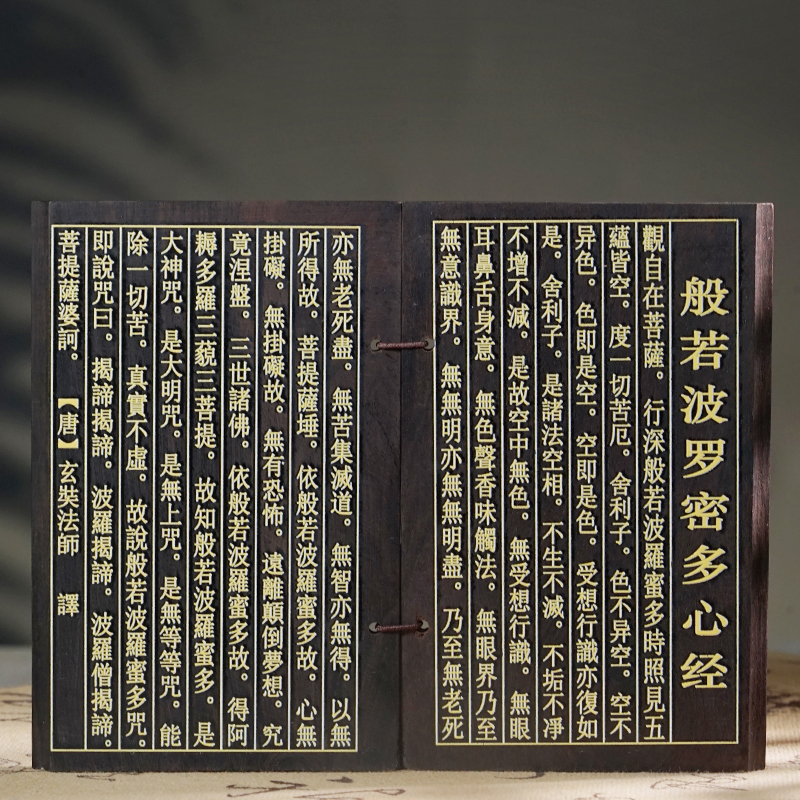 般若波罗密多心经
觀自在菩薩。行深般若波羅蜜多時照見五
蘊皆空。度一切苦厄。舍利子。色不异空。空不
异色。色即是空。空即是色。受想行識亦復如
是。舍利子。是諸法空相。不生不滅。不垢不凈
不增不減。是故空中無色。無受想行識。無眼
耳鼻舌身意。無色聲香味觸法。無眼界乃至
無意識界。無無明亦無無明盡。乃至無老死
亦無老死盡。無苦集滅道。無智亦無得。以無
所得故。菩提薩埵。依般若波羅蜜多故。心無
掛礙。無掛礙故。無有恐怖。遠離顛倒夢想。究
竟涅盤。三世諸佛。依般若波羅蜜多故。得阿
耨多羅三藐三菩提。故知般若波羅蜜多。是
大神咒。是大明咒。是無上咒。是無等等咒。能
除一切苦。真實不虛。故說般若波羅蜜多咒。
即說咒曰。揭諦揭諦。波羅揭諦。波羅僧揭諦。
菩提薩婆訶。【唐】玄奘法師 譯